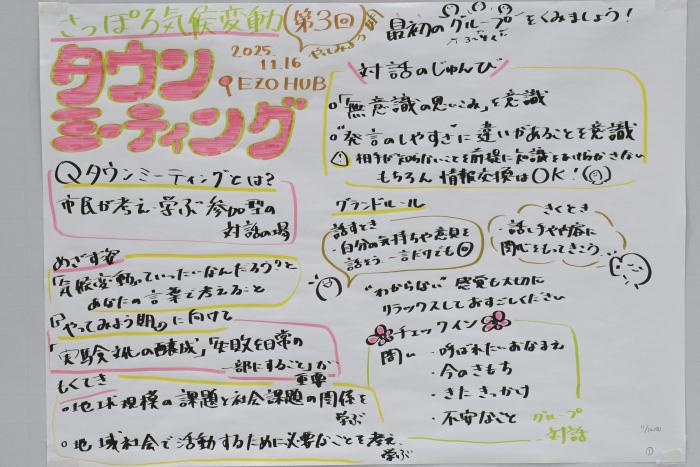 さっぽろ気候変動
第3回
やってみよう期
タウン
ミーティング
2025.
11.16
EZO HUB
Qタウンミーティングとは?
市民が考え・学ぶ参加型の
対話の場
めざす姿
「気候変動っていったいなんだろう」と
あなたの言葉で考えること
「やってみよう期」に向けて
「実験 の醸成」「失敗を日常の
一部にすること」が
重要
もくてき
○地球規模の課題と社会課題の関係を
学ぶ
○地域社会で活動するために必要なことを考え、
学ぶ
最初のグループをくみましょう!
対話のじゅんび
○「無意識の思いこみ」を意識
○"発言のしやすさ"に違いがあることを意識
相手が知らないことを前提に知識をひけらかさない
もちろん 情報交換はOK!
グランドルール
話すとき
・自分の気持ちや意見を
話そう 一言だけでも
きくとき
・話し手や内容に
関心をもってきこう
"わからない"感覚も大切に
リラックスしておすごしください
チェックイン
問い
・呼ばれたいおなまえ
・今のきもち
・きたきっかけ
・不安なこと
グループ
対話
①